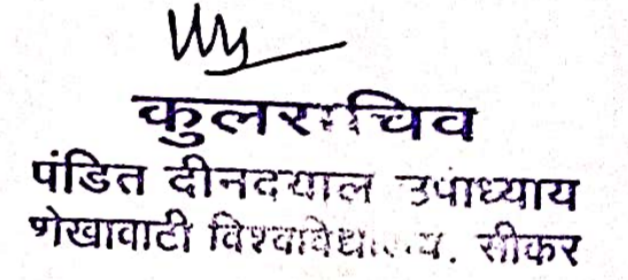 कुलसचिव
पंडित दीनदयाल उपाध्याय
शेखावाटी विश्वविद्यालय, सीकर